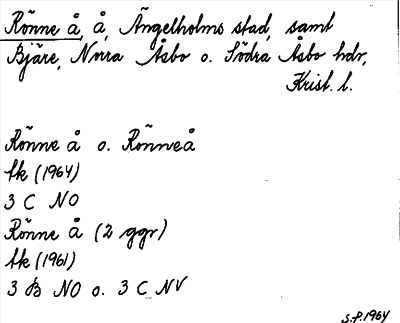 Rönne å, å, Ängelholms stad, samt
Bjäre, Norra Åsbo o. Södra Åsbo hdr,
Krist. l.
Rönne å o. Rönneå
tk (1964)
3 C NO
Rönne å (2 ggr)
tk (1961)
3 B NO o. 3 C NV
S.P. 1964